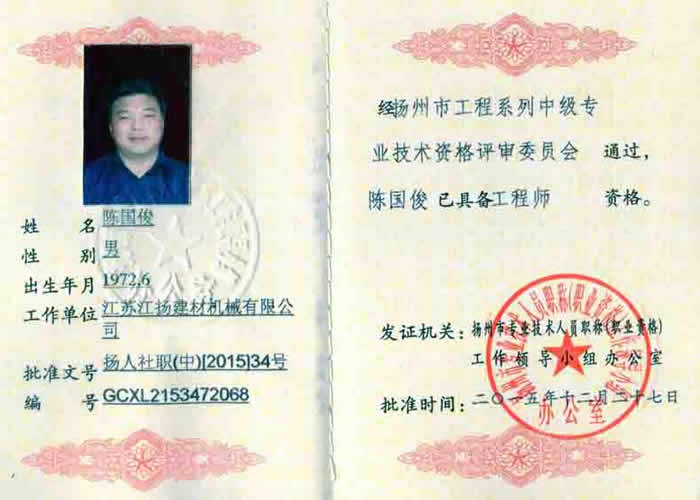 姓 名 陈国俊
性 别 男
出生年月 1972,6
工作单位 江苏江扬建材机械有限公
司
批准文号 扬人社职(中)[2015]34号
编 号 GCXL2153472068
经扬州市工程系列中级专
业技术资格评审委员会 通过，
陈国俊 已具备工程师 资格。
发证机关：扬州市专业技术人员职称(职业资格)
工作领导小组办公室
批准时间：二〇一五年十二月二十七日
办公室